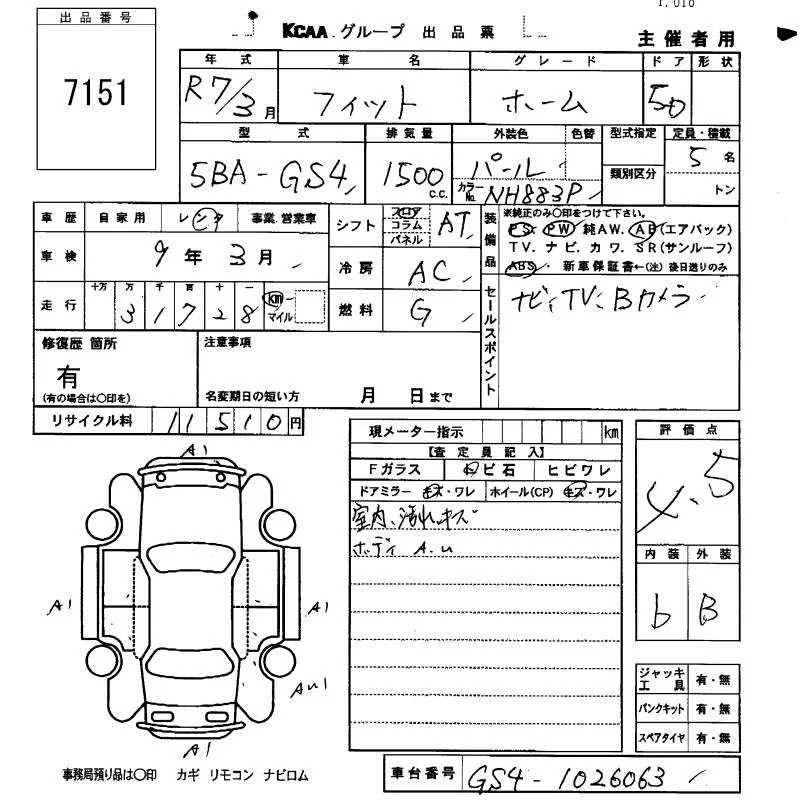 出品番号
7151
KCAA グループ 出品票
主催者用
年式 車名 グレード ドア 形状
R7/3月 フィット ホーム 5D
型式 排気量 外装色 色替 型式指定 定員・積載
5BA-GS4 1500 c.c. パール 5名
カラーNo. NH883P 類別区分 トン
車歴 自家用 レンタ 事業.営業車
シフト フロア コラム パネル AT
装備品
※純正のみ〇印をつけて下さい。
PS. PW. 純AW. AB(エアバック)
TV. ナビ. カワ. SR(サンルーフ)
ABS. 新車保証書←(注) 後日送りのみ
車検 9年3月
冷房 AC
走行 十万 万 千 百 十 一
31728 km マイル
燃料 G
セールスポイント
ナビ、TV、Bカメラ
修復歴 箇所
有
(有の場合は〇印を)
注意事項
名変期日の短い方 月 日まで
リサイクル料 11510円
現メーター指示 km
【査定員記入】
Fガラス キ ピ石 ヒビワレ
ドアミラー キズ・ワレ ホイール(CP) キズ・ワレ
室内、汚れキズ
ボディ A.U
評価点
4.5
内装 外装
b B
A1
A1
A1
AU1
A1
ジャッキ工具 有・無
パンクキット 有・無
スペアタイヤ 有・無
事務局預り品は〇印 カギ リモコン ナビロム
車台番号 GS4-1026063